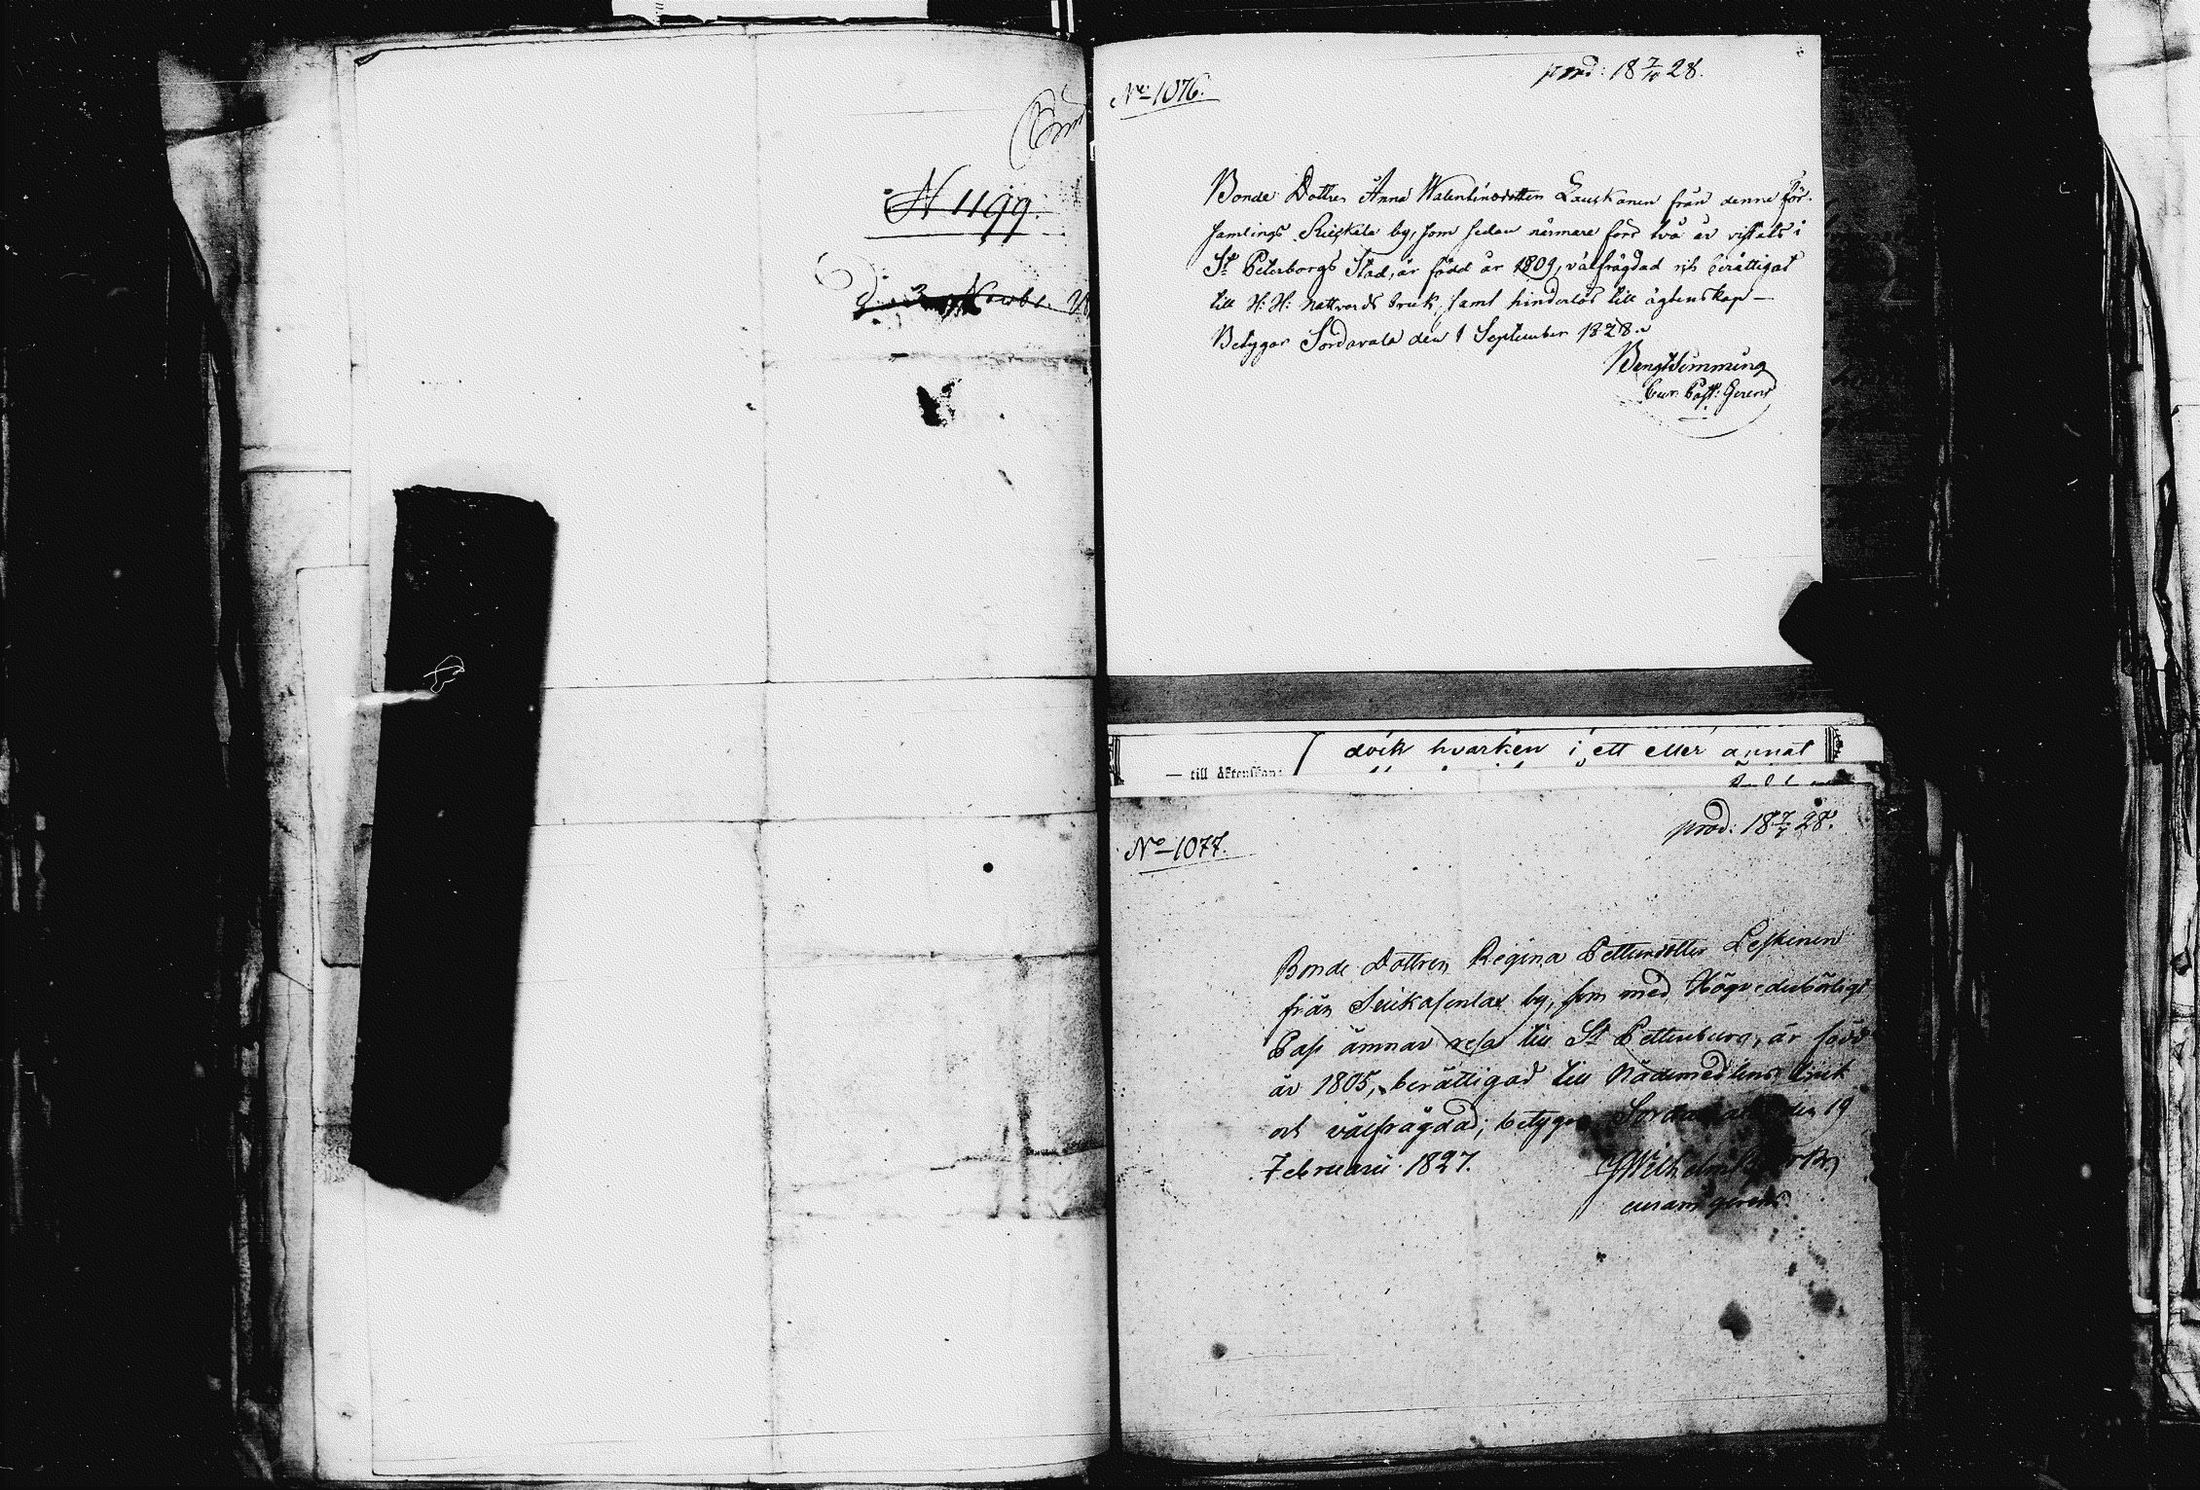 N 1199.
d. 3 Novbr.
No 1076.
prod: 18 7/10 28.
Bonde Dottren Anna Walentinsdotter Lauskanen från denne För-
samlings Rieskala by, som sedan närmare förs två år vistats i
St Peterborgs Stad, är född år 1809, välfrägdad och berättigad
till H: H: Nattvards bruk, samt hinderlös till ägtenskap —
Betygar Sordavala den 1 September 1828.
Bengt Simming
Cur. Past: Gerens
— till äktenskap:
dock hvarken i ett eller annat
No 1077.
prod: 18 7/ 28.
Bonde Dottren Regina Pettersdotter Leskinen
från Leikasenlax by, som med Högvederbörligt
Pass ämnar resa till St Pettersburg, är född
år 1805, berättigad till Nådemedlens bruk
och välfrägdad; betygar Sordavala den 19
Februarii 1827.
Wilhelm
curam gerens